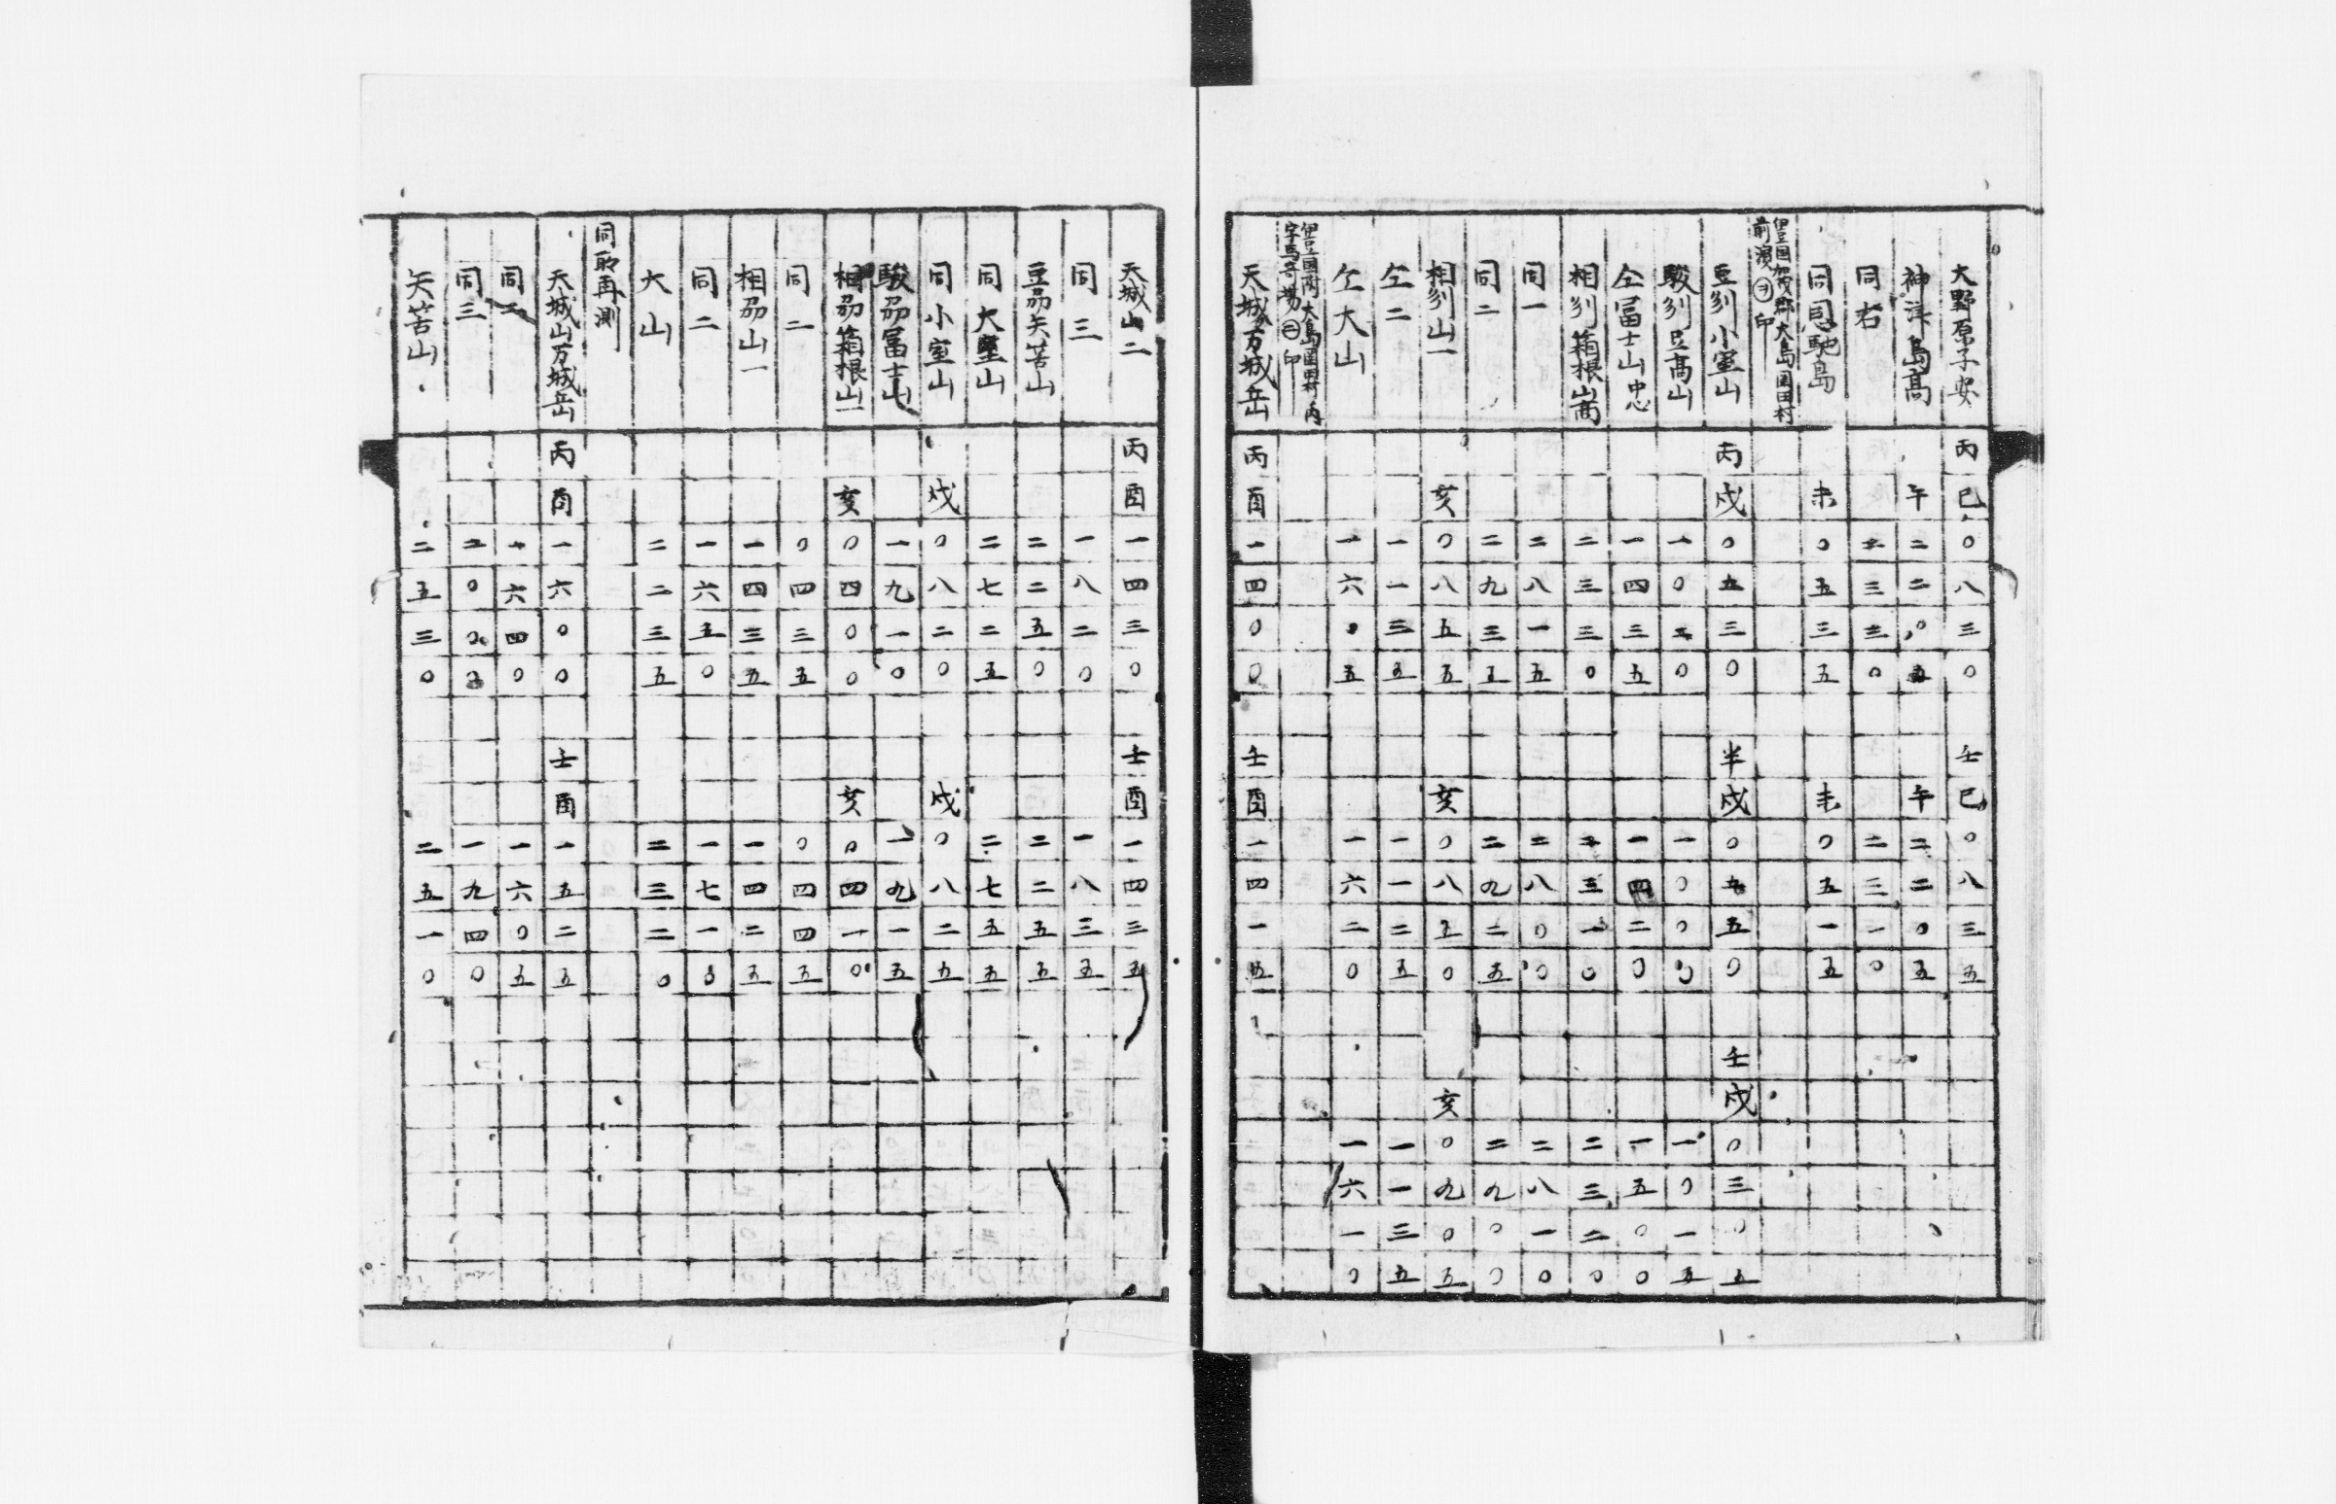 大野原子安 丙巳〇八三〇 壬巳〇八三五
神津島高 午二二〇五 午二二〇五
同右 二三三〇 二三一〇
同同馳島 未〇五三五 未〇五一五
伊豆国加茂郡大島岡田村
前濱㋾印
豆刕小室山 丙戌〇五三〇 半戌〇五五〇 壬戌〇三〇五
駿刕足高山 一〇二〇 一〇〇〇 一〇一五
仝冨士山中心 一四三五 一四二〇 一五〇〇
相刕箱根山高 二三三〇 二三一〇 二三二〇
同一 二八一五 二八〇〇 二八一〇
同二 二九三五 二九二五 二九〇〇
相刕山一 亥〇八五五 亥〇八五〇 亥〇九〇五
仝二 一一三五 一一二五 一一三五
仝大山 一六〇五 一六二〇 一六一〇
伊豆国同大島岡田村内
字馬告場㊁印
天城万城岳 丙酉一四〇〇 壬酉一四一五
天城山二 丙酉一四三〇 壬酉一四三五
同三 一八二〇 一八三五
豆刕矢筈山 二二五〇 二二五五
同大室山 二七二五 二七五五
同小室山 戌〇八二〇 戌〇八二五
駿刕冨士山 一九一〇 一九一五
相刕箱根山一 亥〇四〇〇 亥〇四一〇
同二 〇四三五 〇四四五
相刕山一 一四三五 一四二五
同二 一六五〇 一七一〇
大山 二二三五 二三二〇
同所再測
天城山万城岳 丙酉一六〇〇 壬酉一五二五
同二 一六四〇 一六〇五
同三 二〇〇〇 一九四〇
矢筈山 二五三〇 二五一〇